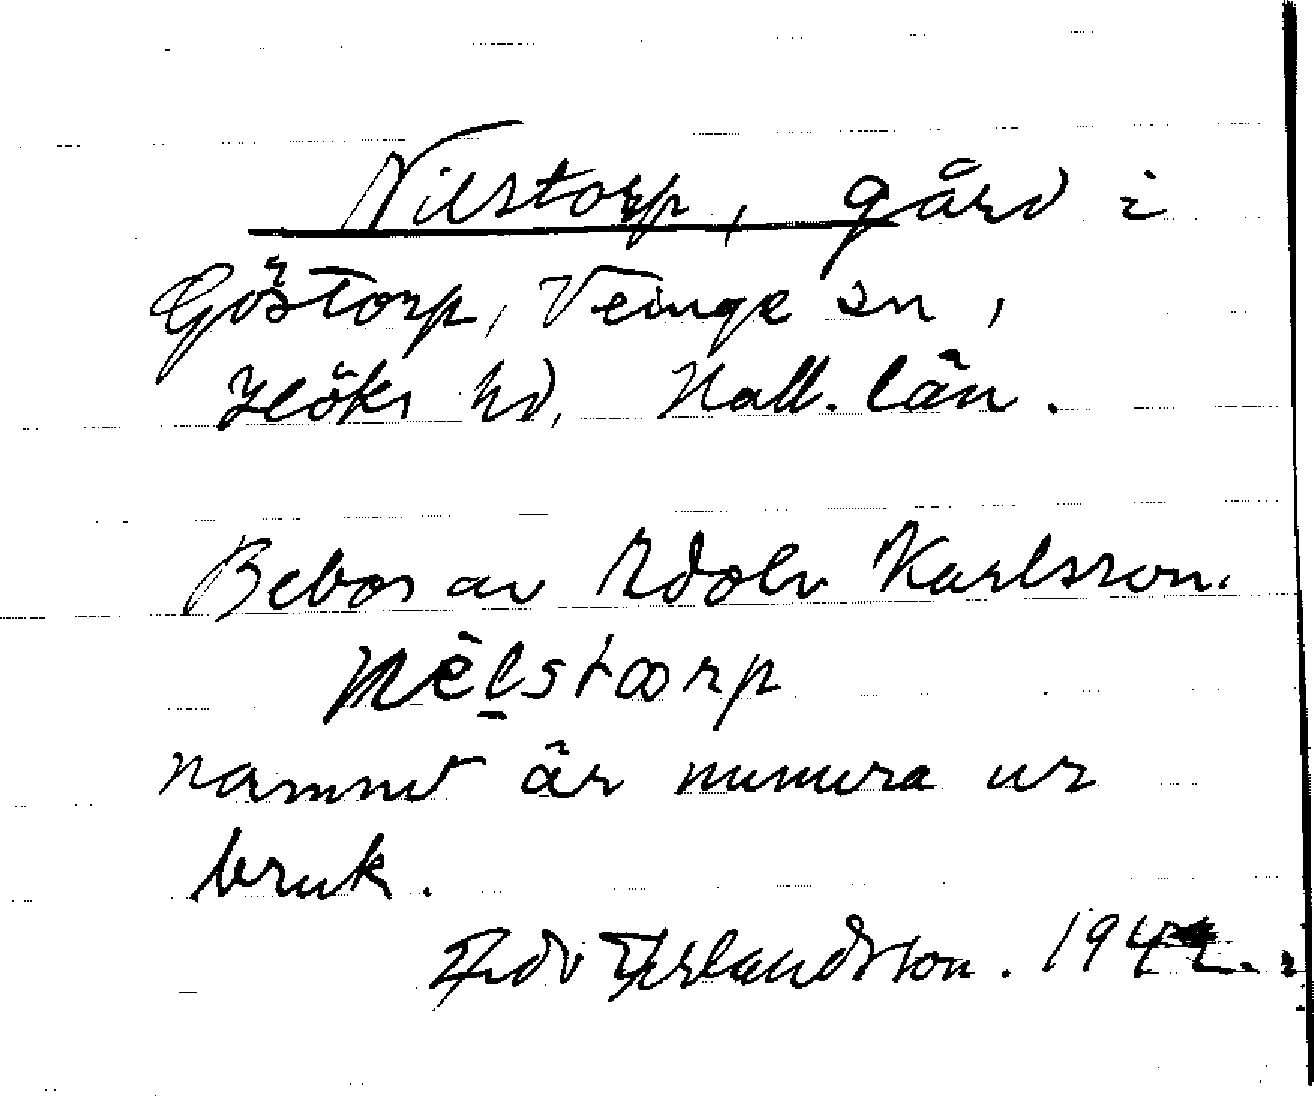 Nilstorp, gård i
Göstorp, Veinge sn,
Höks hd, Hall. län.
Bebos av Adolv Karlsson.
nèlstoorp
namnet är numera ur
bruk.
Edv Erlandsson.